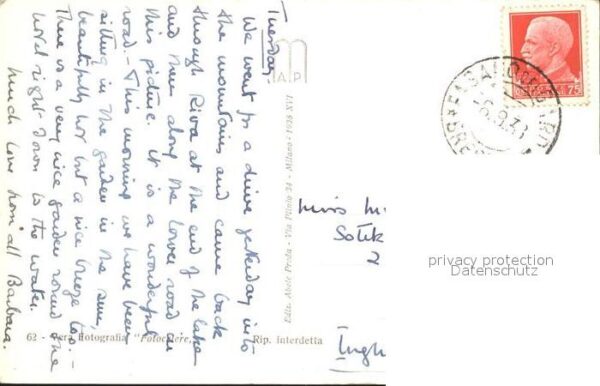 Tuesday
We went for a drive yesterday into
the mountains and came back
through Riva at the end of the lake
and then along the lower road in
this picture. it is a wonderful
road - This morning we have been
sitting in the garden in the sun,
beautifully hot but a nice breeze too. -
There is a very nice garden round the
hotel right down to the water.
much love from all Barbara.
AP
Ediz. Alesie Preda - Via Plinio 34 - Milano - 1938 XVI
62 - Vera Fotografia "Fotocelere"
Rip. interdetta
75
6.9.38
Miss M
2
privacy protection
Datenschutz